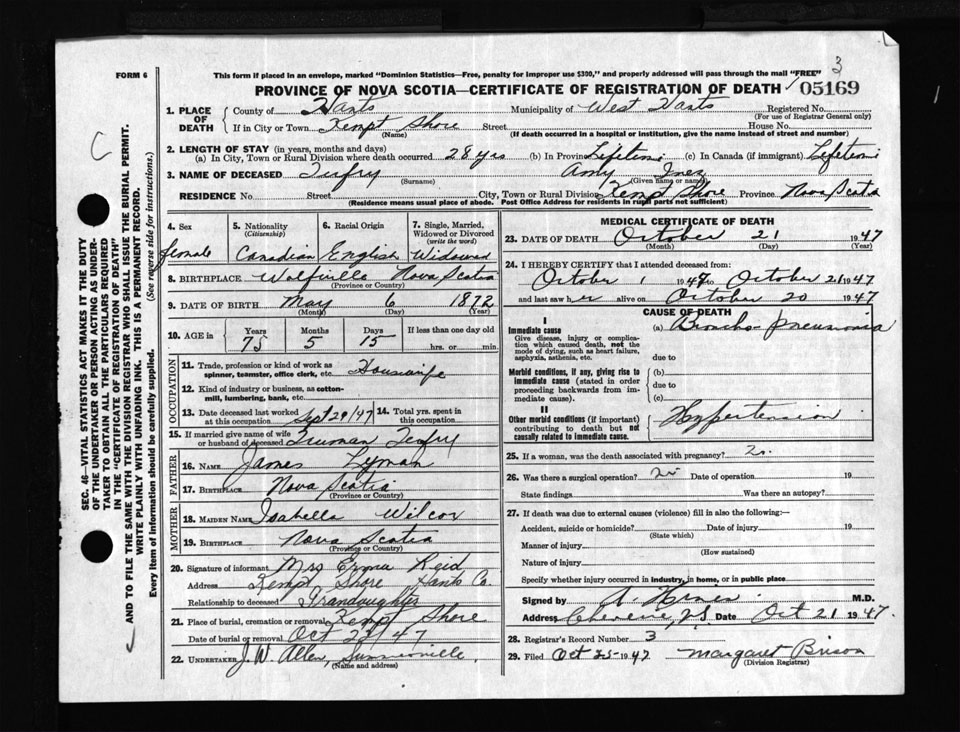 3
FORM 6
This form if placed in an envelope, marked "Dominion Statistics—Free, penalty for improper use $300," and properly addressed will pass through the mail "FREE"
PROVINCE OF NOVA SCOTIA—CERTIFICATE OF REGISTRATION OF DEATH 05169
1. PLACE OF DEATH County of Hants Municipality of West Hants Registered No.
(For use of Registrar General only)
If in City or Town Kempt Shore Street House No.
(Name) (If death occurred in a hospital or institution, give the name instead of street and number)
2. LENGTH OF STAY (in years, months and days)
(a) In City, Town or Rural Division where death occurred 28 yrs (b) In Province Lifetime (c) In Canada (if immigrant) Lifetime
3. NAME OF DECEASED Tufry Amy Inez
(Surname) (Given name or names)
RESIDENCE No. Street City, Town or Rural Division Kempt Shore Province Nova Scotia
(Residence means usual place of abode. Post Office Address for residents in rural parts not sufficient)
4. Sex 5. Nationality (Citizenship) 6. Racial Origin 7. Single, Married, Widowed or Divorced (write the word)
female Canadian English Widowed
8. BIRTHPLACE Wolfville Nova Scotia
(Province or Country)
9. DATE OF BIRTH May 6 1872
(Month) (Day) (Year)
10. AGE in Years Months Days If less than one day old
75 5 15 hrs. or min.
OCCUPATION
11. Trade, profession or kind of work as spinner, teamster, office clerk, etc. Housewife
12. Kind of industry or business, as cotton-mill, lumbering, bank, etc.
13. Date deceased last worked at this occupation Sept 29/47 14. Total yrs. spent in this occupation
15. If married give name of wife or husband of deceased Truman Tufry
FATHER
16. NAME James Lyman
17. BIRTHPLACE Nova Scotia
(Province or Country)
MOTHER
18. MAIDEN NAME Isabella Wilcox
19. BIRTHPLACE Nova Scotia
(Province or Country)
20. Signature of informant Mrs Erma Reid
Address Kempt Shore Hants Co.
Relationship to deceased Grandaughter
21. Place of burial, cremation or removal Kempt Shore
Date of burial or removal Oct 23/47
22. UNDERTAKER J. W. Allen, Summerville
(Name and address)
MEDICAL CERTIFICATE OF DEATH
23. DATE OF DEATH October 21 1947
(Month) (Day) (Year)
24. I HEREBY CERTIFY that I attended deceased from:
October 1 1947 to October 21 1947
and last saw her alive on October 20 1947
CAUSE OF DEATH
I
Immediate cause (a) Broncho-pneumonia
Give disease, injury or complication which caused death, not the mode of dying, such as heart failure, asphyxia, asthenia, etc.
due to
Morbid conditions, if any, giving rise to immediate cause (stated in order proceeding backwards from immediate cause). (b)
due to
(c)
II
Other morbid conditions (if important) contributing to death but not causally related to immediate cause. Hypertension
25. If a woman, was the death associated with pregnancy? no
26. Was there a surgical operation? no Date of operation 19
State findings Was there an autopsy?
27. If death was due to external causes (violence) fill in also the following:—
Accident, suicide or homicide? Date of injury 19
(State which)
Manner of injury
(How sustained)
Nature of injury
Specify whether injury occurred in industry, in home, or in public place
Signed by A. M.D.
Address Cheverie, N.S. Date Oct 21 1947
28. Registrar's Record Number 3
29. Filed Oct 25 1947 Margaret Brison
(Division Registrar)
SEC. 46—VITAL STATISTICS ACT MAKES IT THE DUTY
OF THE UNDERTAKER OR PERSON ACTING AS UNDER-
TAKER TO OBTAIN ALL THE PARTICULARS REQUIRED
IN THE "CERTIFICATE OF REGISTRATION OF DEATH"
AND TO FILE THE SAME WITH THE DIVISION REGISTRAR WHO SHALL ISSUE THE BURIAL PERMIT.
WRITE PLAINLY WITH UNFADING INK. THIS IS A PERMANENT RECORD.
Every item of information should be carefully supplied. (See reverse side for instructions.)